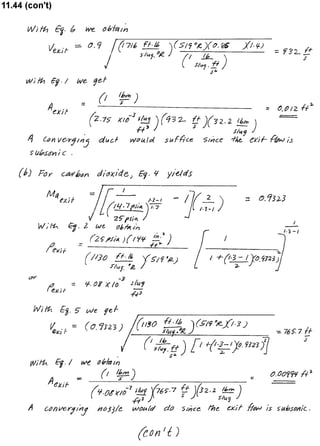 11.44 (con't)
With Eq. 6 we obtain
V_exit = 0.9 √[ (1716 ft.lb / slug.°R)(519°R)(0.86)(1.4) / (1 lb / slug. ft/s²) ] = 932 ft/s
With Eq. 1 we get
A_exit = (1 lbm/s) / [ (2.75 x10⁻³ slug/ft³)(932 ft/s)(32.2 lbm/slug) ] = 0.012 ft²
A converging duct would suffice since the exit flow is
subsonic.
(b) For carbon dioxide, Eq. 4 yields
Ma_exit = √{ [ 1 / (14.7psia / 25psia)^((1.3-1)/1.3) - 1 ] ( 2 / 1.3-1 ) } = 0.9323
With Eq. 2 we obtain
ρ_exit = (25psia)(144 in.²/ft²) / [ (1130 ft.lb / slug.°R)(519°R) ] [ 1 / 1 + (1.3-1 / 2)(0.9323)² ]^(1/1.3-1)
or
ρ_exit = 4.08 x 10⁻³ slug/ft³
With Eq. 5 we get
V_exit = (0.9323) √{ (1130 ft.lb / slug.°R)(519°R)(1.3) / (1 lb / slug. ft/s²)[ 1 + (1.3-1 / 2)(0.9323)² ] } = 765.7 ft/s
With Eq. 1 we obtain
A_exit = (1 lbm/s) / [ (4.08x10⁻³ slug/ft³)(765.7 ft/s)(32.2 lbm/slug) ] = 0.00994 ft²
A converging nozzle would do since the exit flow is subsonic.
(con't)